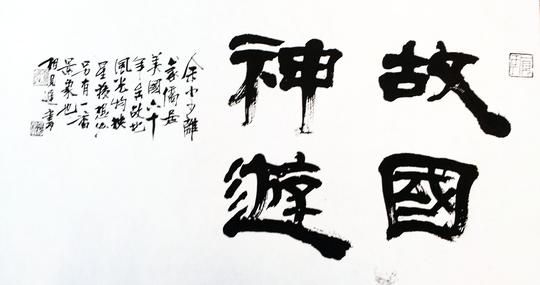 故國
神遊
余小少離
家僑居
美國六十
年矣故地
風光物換
星移想必
另有一番
景象也
書